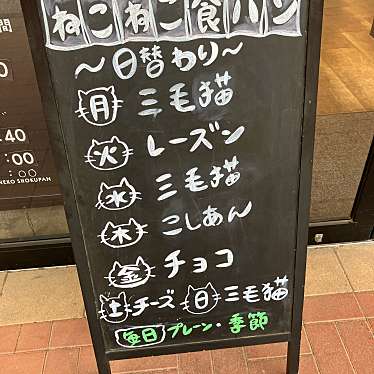 ねこねこ食パン
～日替わり～
月 三毛猫
火 レーズン
水 三毛猫
木 こしあん
金 チョコ
土 チーズ 日 三毛猫
毎日 プレーン・季節
間
:40
:00
NEKO SHOKUPAN